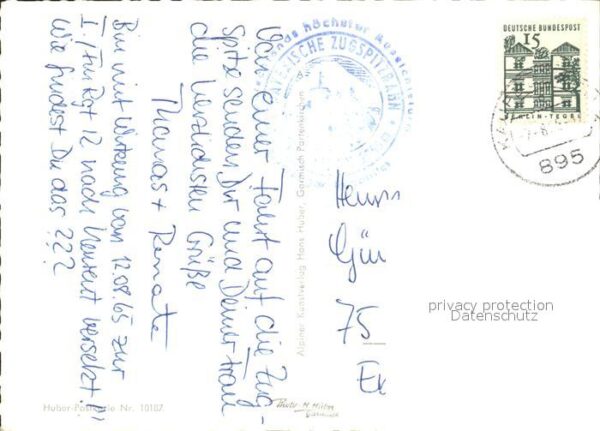 Von einer Fahrt auf die Zug-
spitze senden Dir und Deiner Frau
die herzlichsten Grüße
Thomas + Renate
Bin mit Wirkung vom 12.08.65 zur
I./ Rgt 12 nach versetzt!!
Wie findest Du das ???
Huber-Postkarte Nr. 10107
Alpiner Kunstverlag Hans Huber, Garmisch-Partenkirchen
höchster
BAYERISCHE ZUGSPITZBAHN
DEUTSCHE BUNDESPOST
15
BERLIN-TEGEL
895
Herrn
Gün
75
privacy protection
Datenschutz